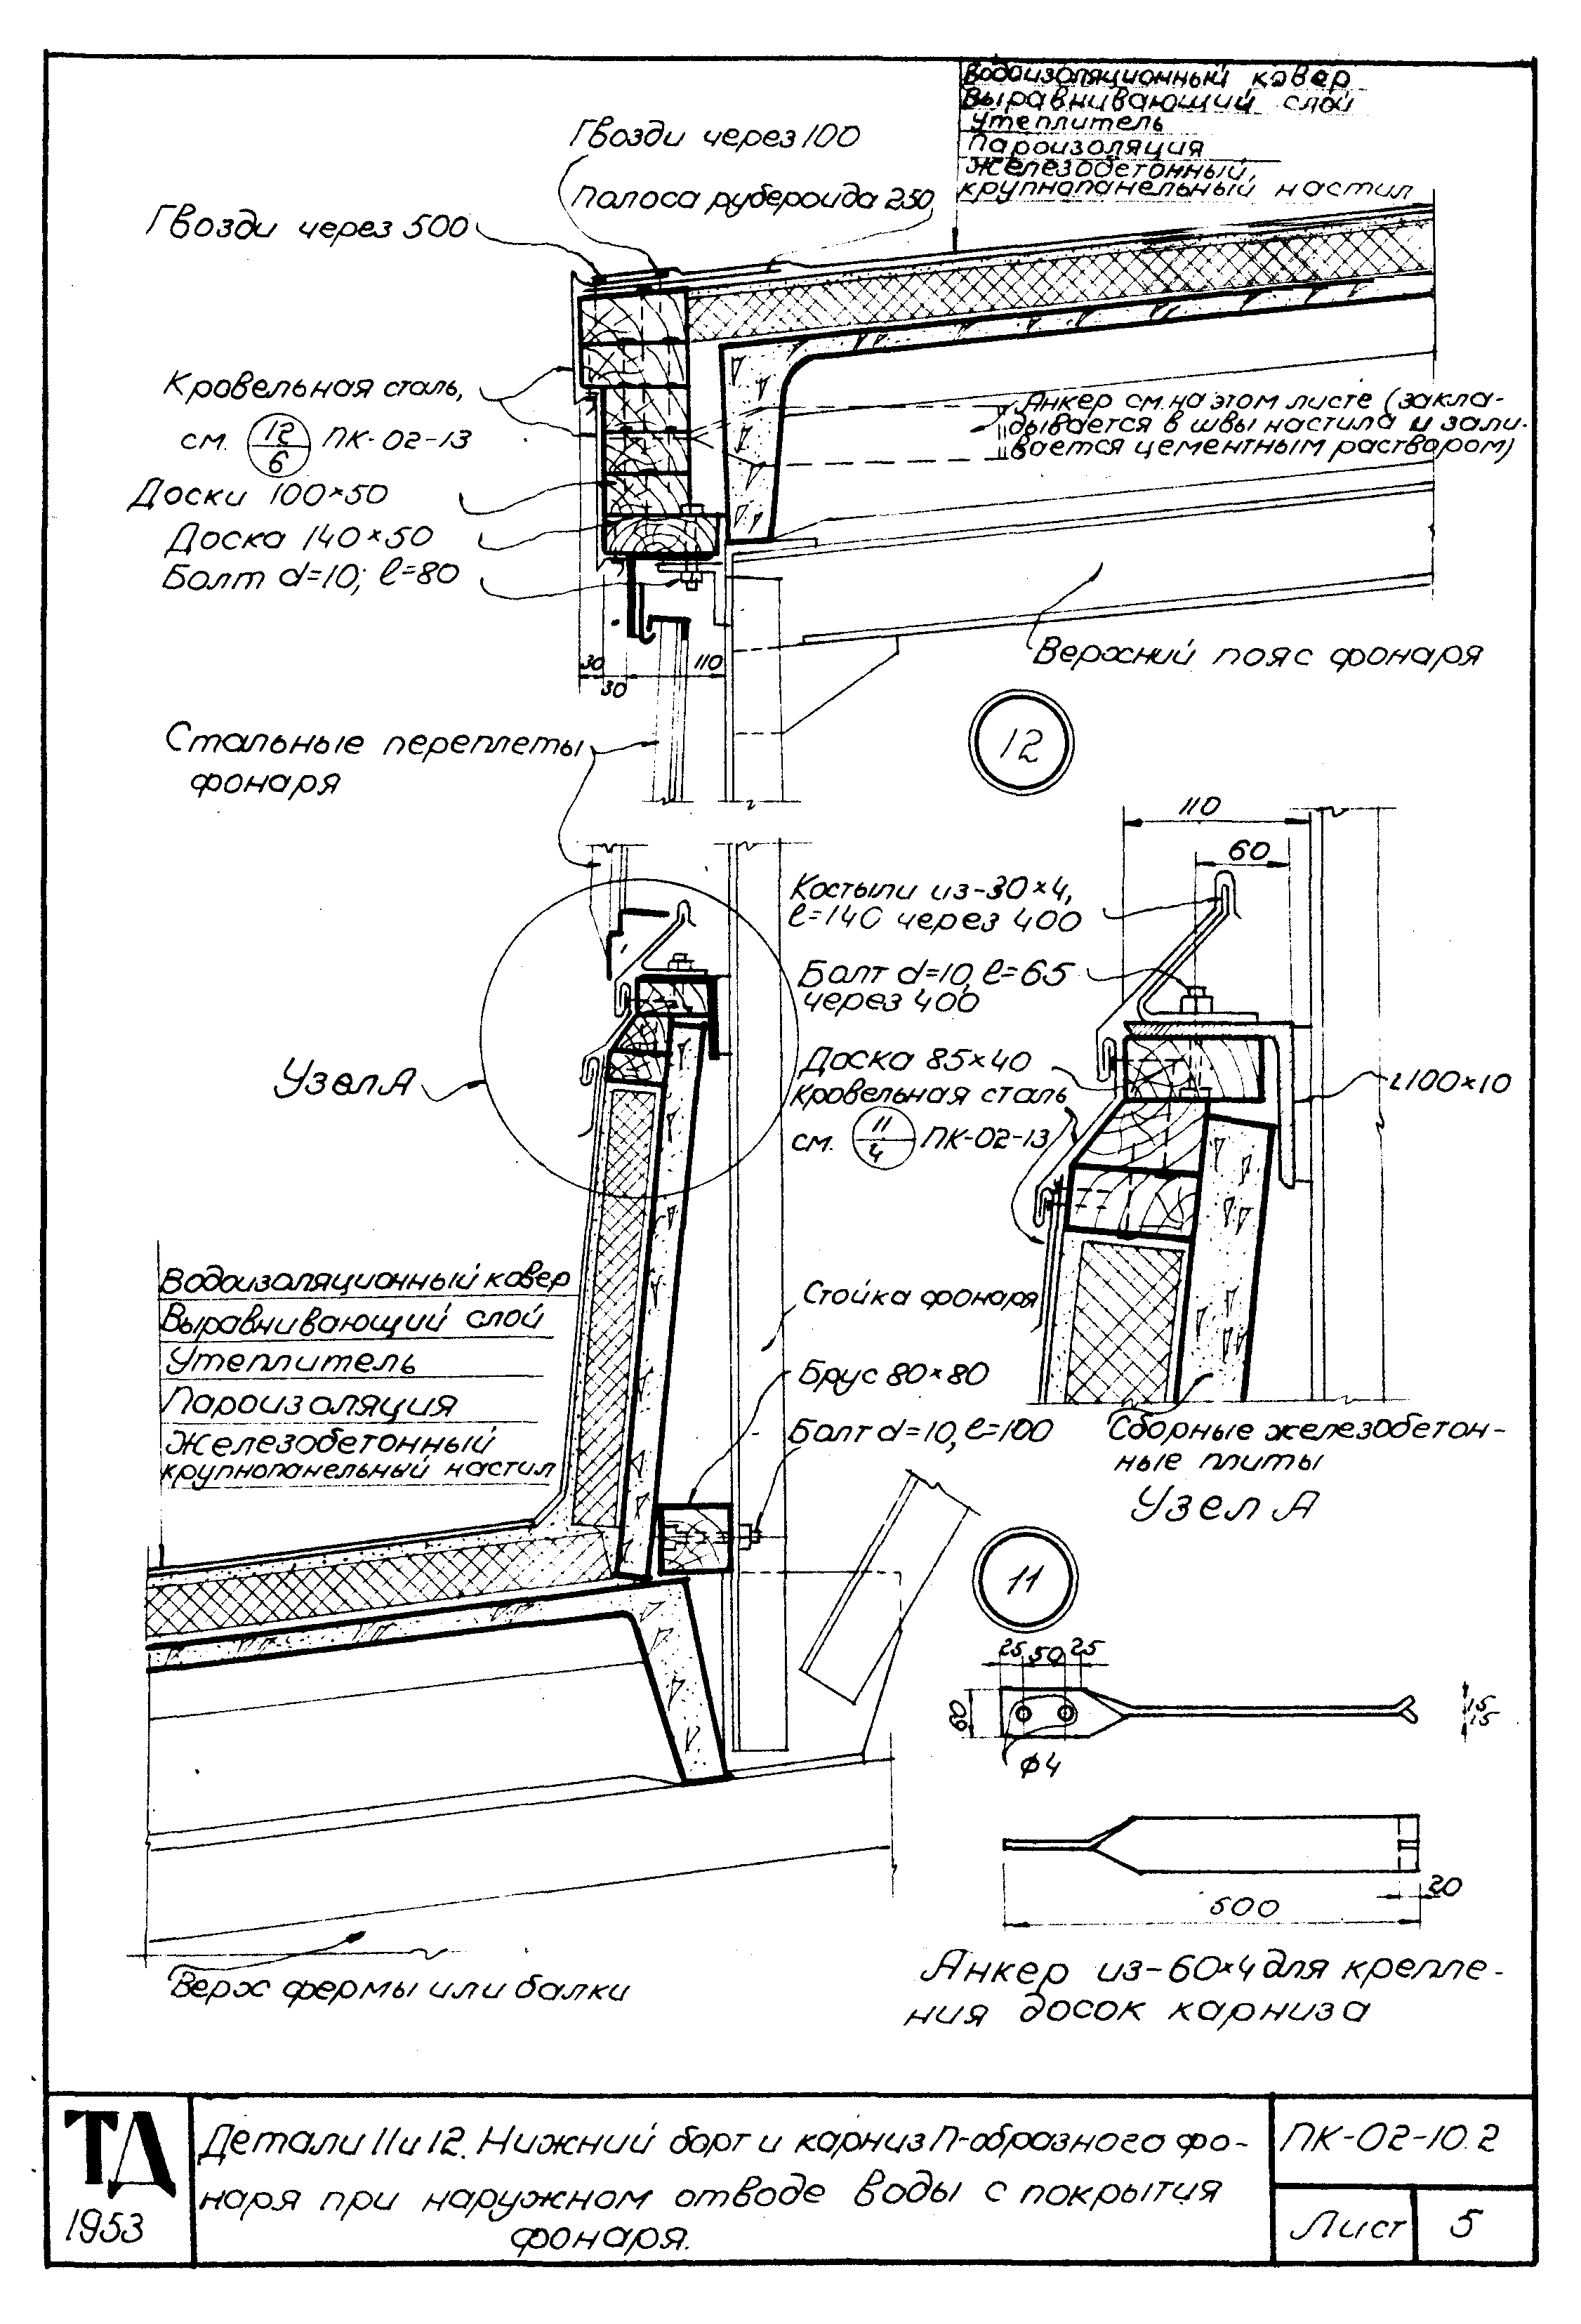 Водоизоляционный ковер
Выравнивающий слой
Утеплитель
Пароизоляция
Железобетонный,
крупнопанельный настил
Гвозди через 100
Полоса рубероида 250
Гвозди через 500
Кровельная сталь,
см. 12/6 ПК-02-13
Доски 100×50
Доска 140×50
Болт d=10; l=80
Анкер см. на этом листе (закла-
дывается в швы настила и зали-
вается цементным раствором)
Верхний пояс фонаря
30
30
110
12
Стальные переплеты
фонаря
110
60
Костыли из-30×4,
l=140 через 400
Болт d=10, l=65
через 400
Доска 85×40
Кровельная сталь
см. 11/4 ПК-02-13
L100×10
Узел А
Водоизоляционный ковер
Выравнивающий слой
Утеплитель
Пароизоляция
Железобетонный
крупнопанельный настил
Стойка фонаря
Брус 80×80
Болт d=10, l=100
Сборные железобетон-
ные плиты
Узел А
11
25 50 25
60
15
15
Ф4
20
500
Верх фермы или балки
Анкер из-60×4 для крепле-
ния досок карниза
ТД
1953
Детали 11 и 12. Нижний борт и карниз П-образного фо-
наря при наружном отводе воды с покрытия
фонаря.
ПК-02-10.2
Лист 5